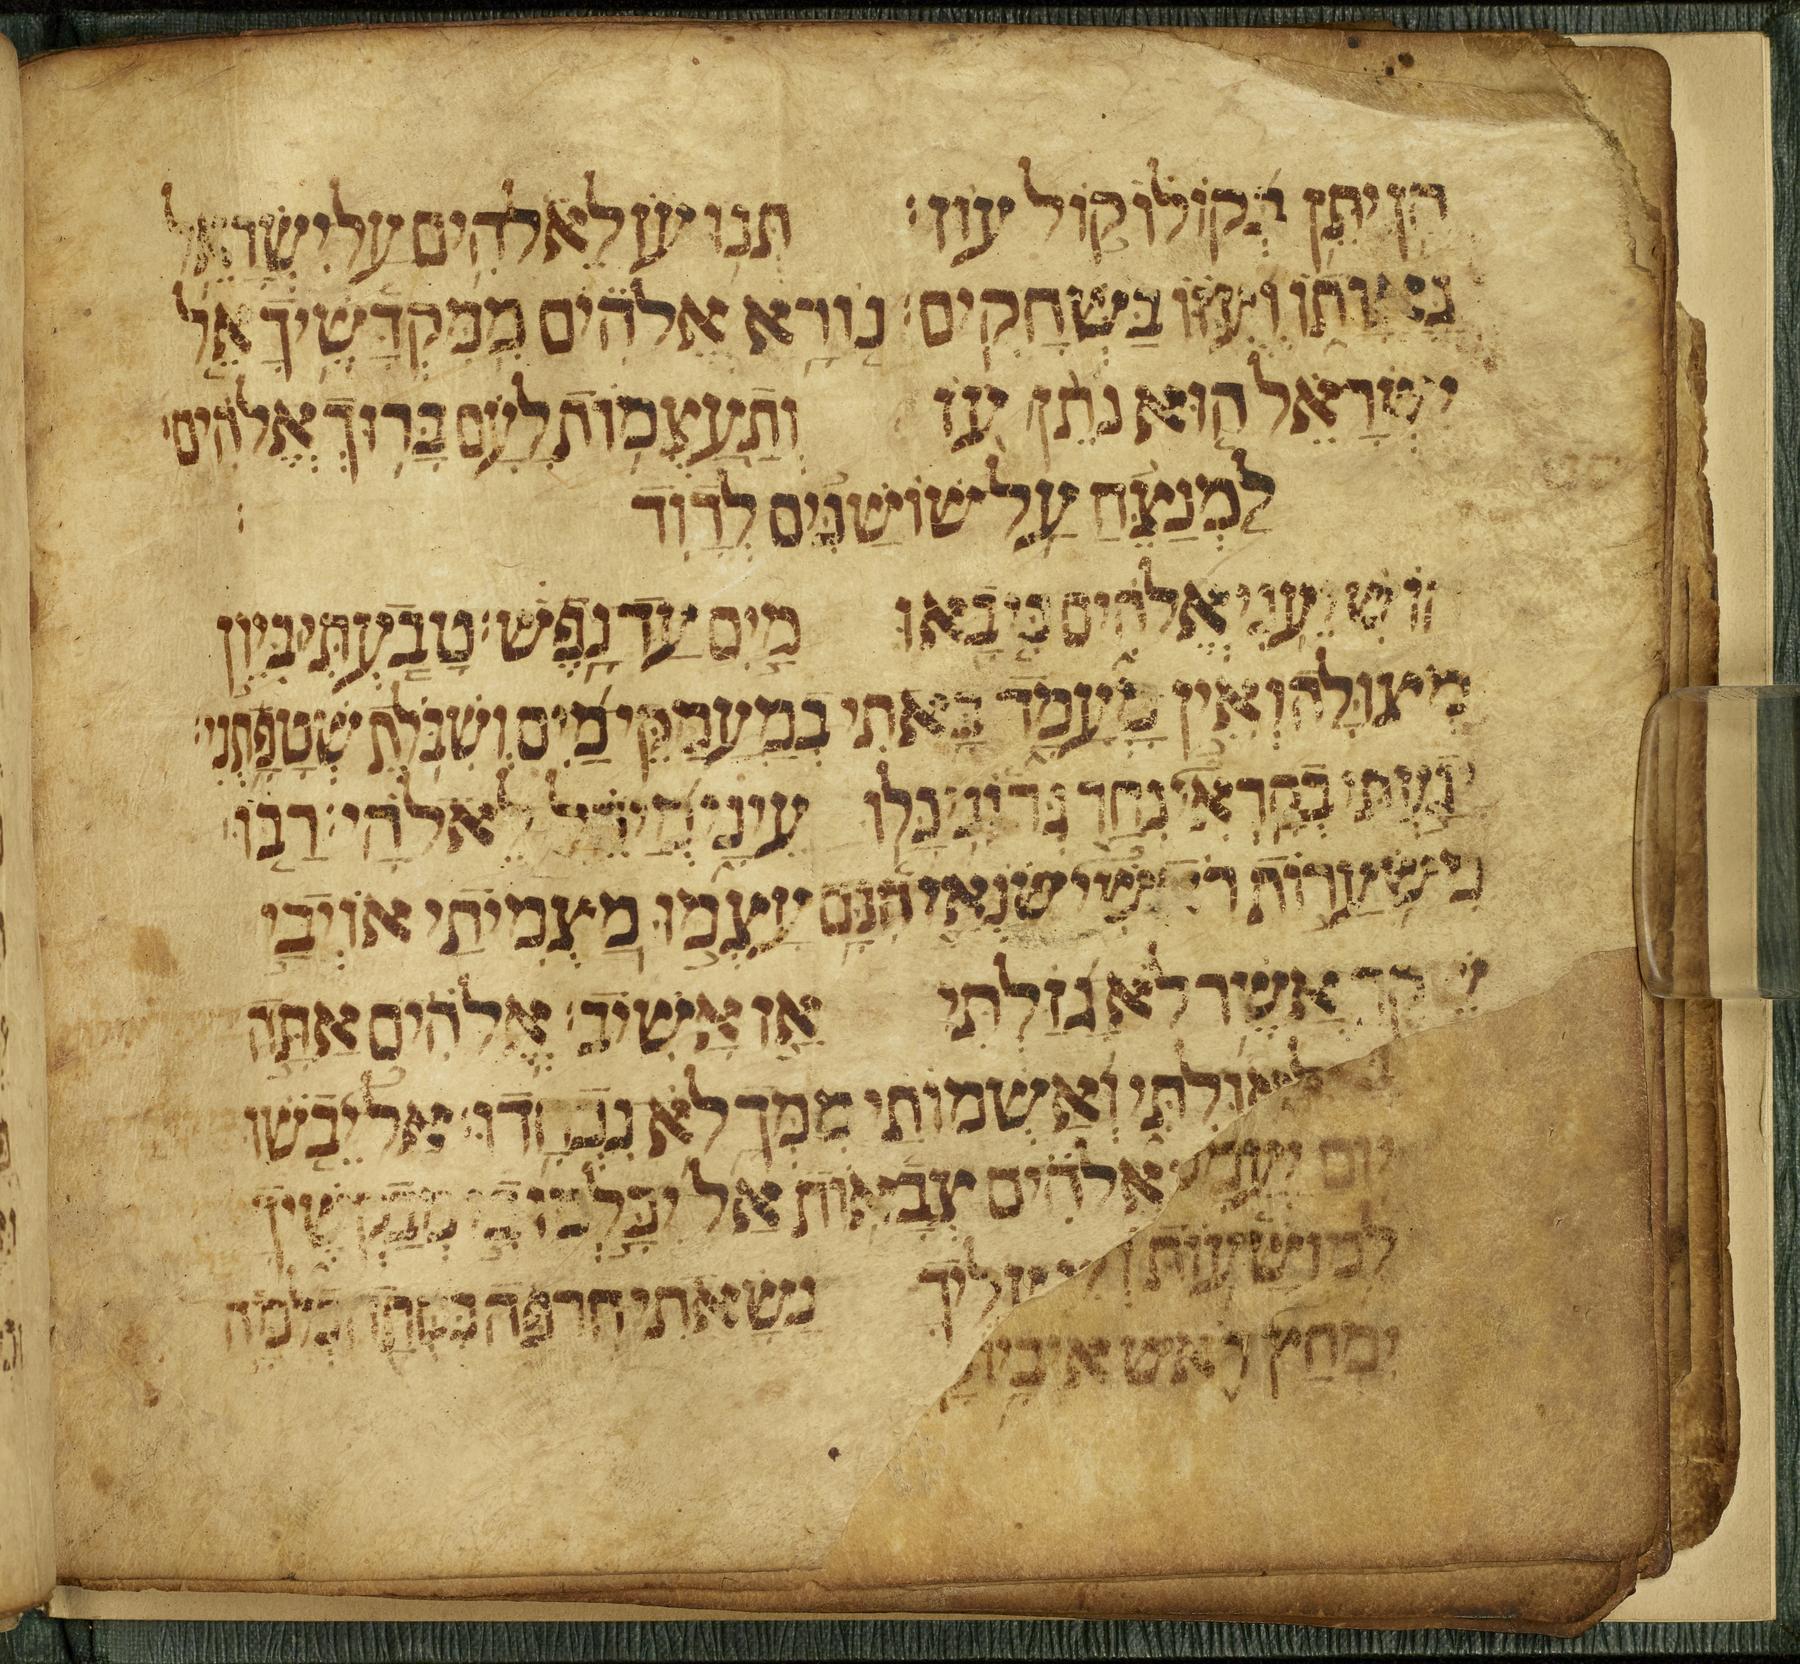 הן יתן בקולו קול עוז׃ תנו עז לאלהים על ישראל
גאותו ועזו בשחקים׃ נורא אלהים ממקדשיך אל
ישראל הוא נתן עז ותעצמות לעם ברוך אלהים׃
למנצח על שושנים לדוד׃
הושיעני אלהים כי באו מים עד נפש׃ טבעתי ביון
מצולה ואין מעמד באתי במעמקי מים ושבלת שטפתני׃
יגעתי בקראי נחר גרוני כלו עיני מיחל לאלהי׃ רבו
משערות ראשי שנאי חנם עצמו מצמיתי אויבי
שקר אשר לא גזלתי אז אשיב׃ אלהים אתה
לאולתי ואשמותי ממך לא נכחדו׃ אל יבשו
אלהים צבאות אל יכלמו בי מבקשיך
עליך נשאתי חרפה כסתה כלמה
יום יעמס
למושעות
ימחץ ראש איביו